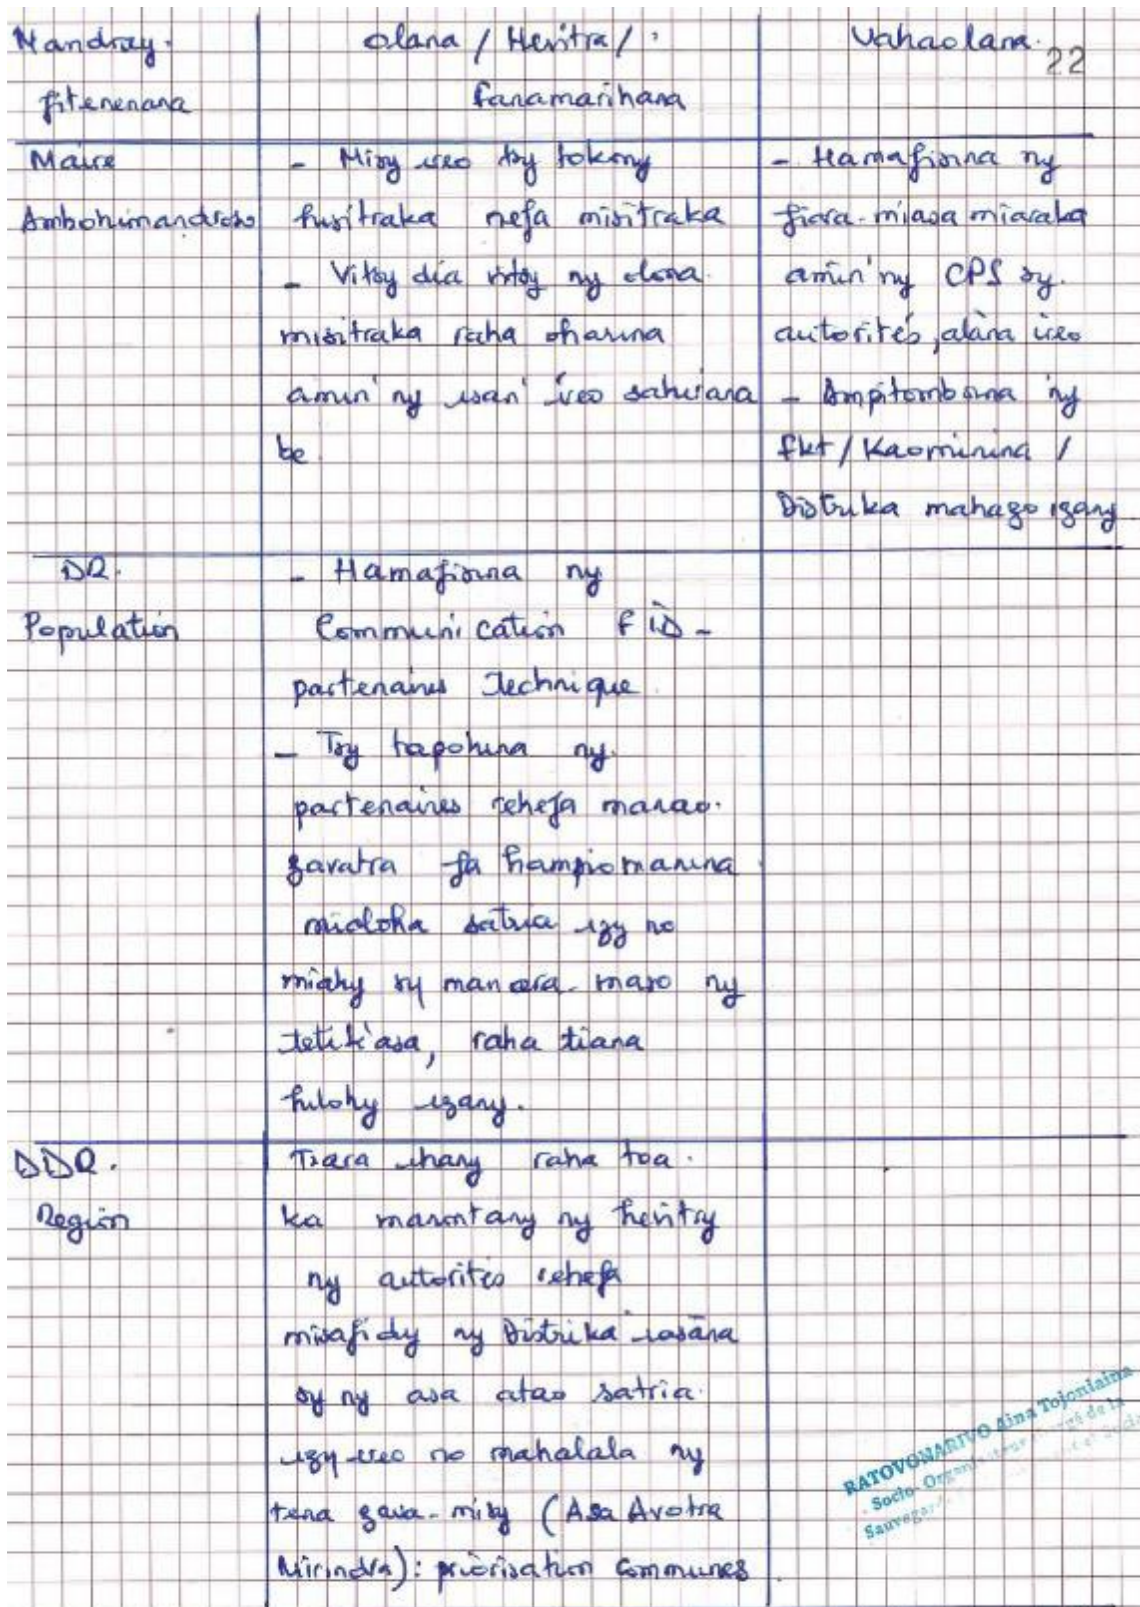 Mandray
fitenenana
olana / Hevitra /
fanamarihana
Vahaolana.
22
Maire
Ambohimandroso
- Misy ireo tsy tokony
hisitraka nefa misitraka
- Vitsy dia vitsy ny olona
misitraka raha oharina
amin'ny isan' ireo sahirana
be
- Hamafisina ny
fiara-miasa miaraka
amin'ny CPS sy
autorités, alàna ireo
- Ampitomboina ny
fkt / Kaominina /
Distrika mahazo izany
DR.
Population
- Hamafisina ny
Communication FID -
partenaires technique
- Tsy tapohina ny
partenaires rehefa manao
zavatra fa hampiomanina
mialoha satria izy no
miahy sy manara-maso ny
tetik'asa, raha tiana
hilohy izany.
DDR.
Region
Tsara ihany raha toa
ka manontany ny hevitry
ny autorités rehefa
misafidy ny Distrika iasàna
sy ny asa atao satria
izy ireo no mahalala ny
tena zava-misy (Asa Avotra
Mirindra): priorisation communes
RATOVONARIVO Aina Tojoniaina
Socio-Organisateur